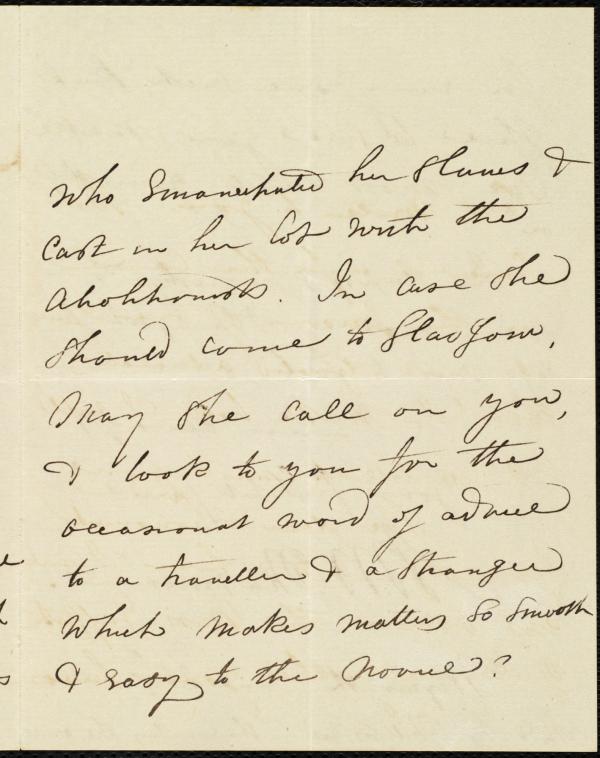 who emancipated her slaves &
cast in her lot with the
Abolitionists. In case she
should come to Glasgow,
may she call on you,
& look to you for the
occasional word of advice
to a traveller & a stranger
which makes matters so smooth
& easy to the novice?